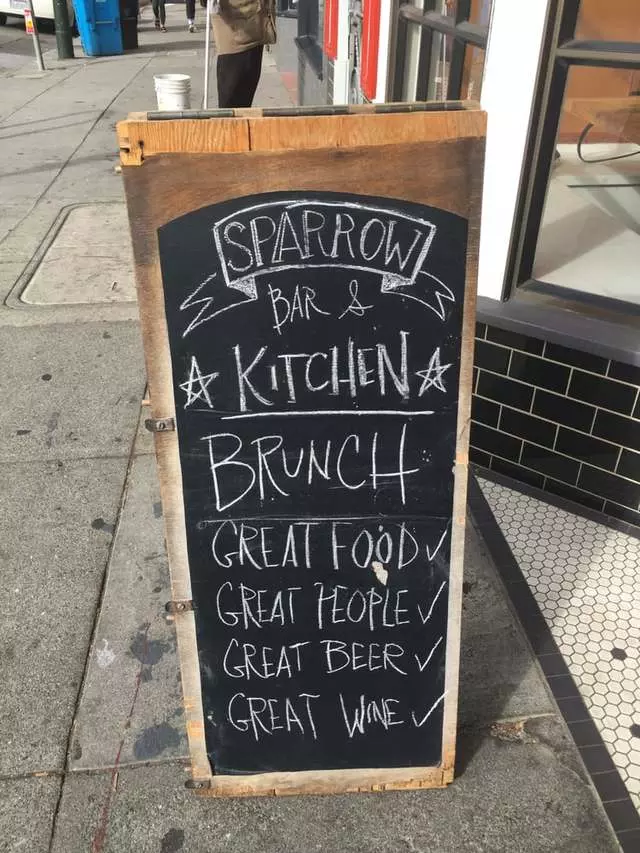 SPARROW
BAR &
KITCHEN
BRUNCH
GREAT FOOD ✓
GREAT PEOPLE ✓
GREAT BEER ✓
GREAT WINE ✓